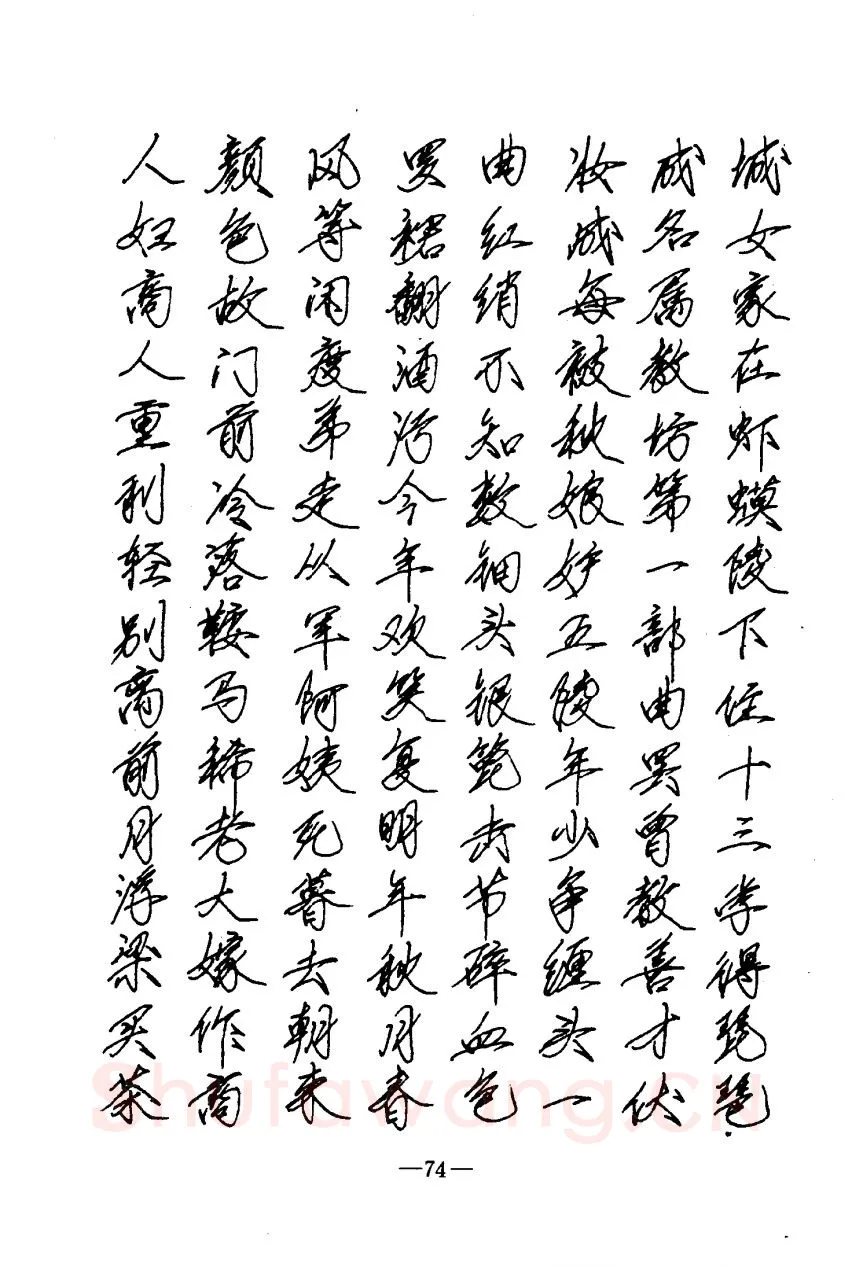 城女家在虾蟆陵下住十三学得琵琶
成名属教坊第一部曲罢曾教善才伏
妆成每被秋娘妒五陵年少争缠头一
曲红绡不知数钿头银篦击节碎血色
罗裙翻酒污今年欢笑复明年秋月春
风等闲度弟走从军阿姨死暮去朝来
颜色故门前冷落鞍马稀老大嫁作商
人妇商人重利轻别离前月浮梁买茶
Shufawang.CN
—74—